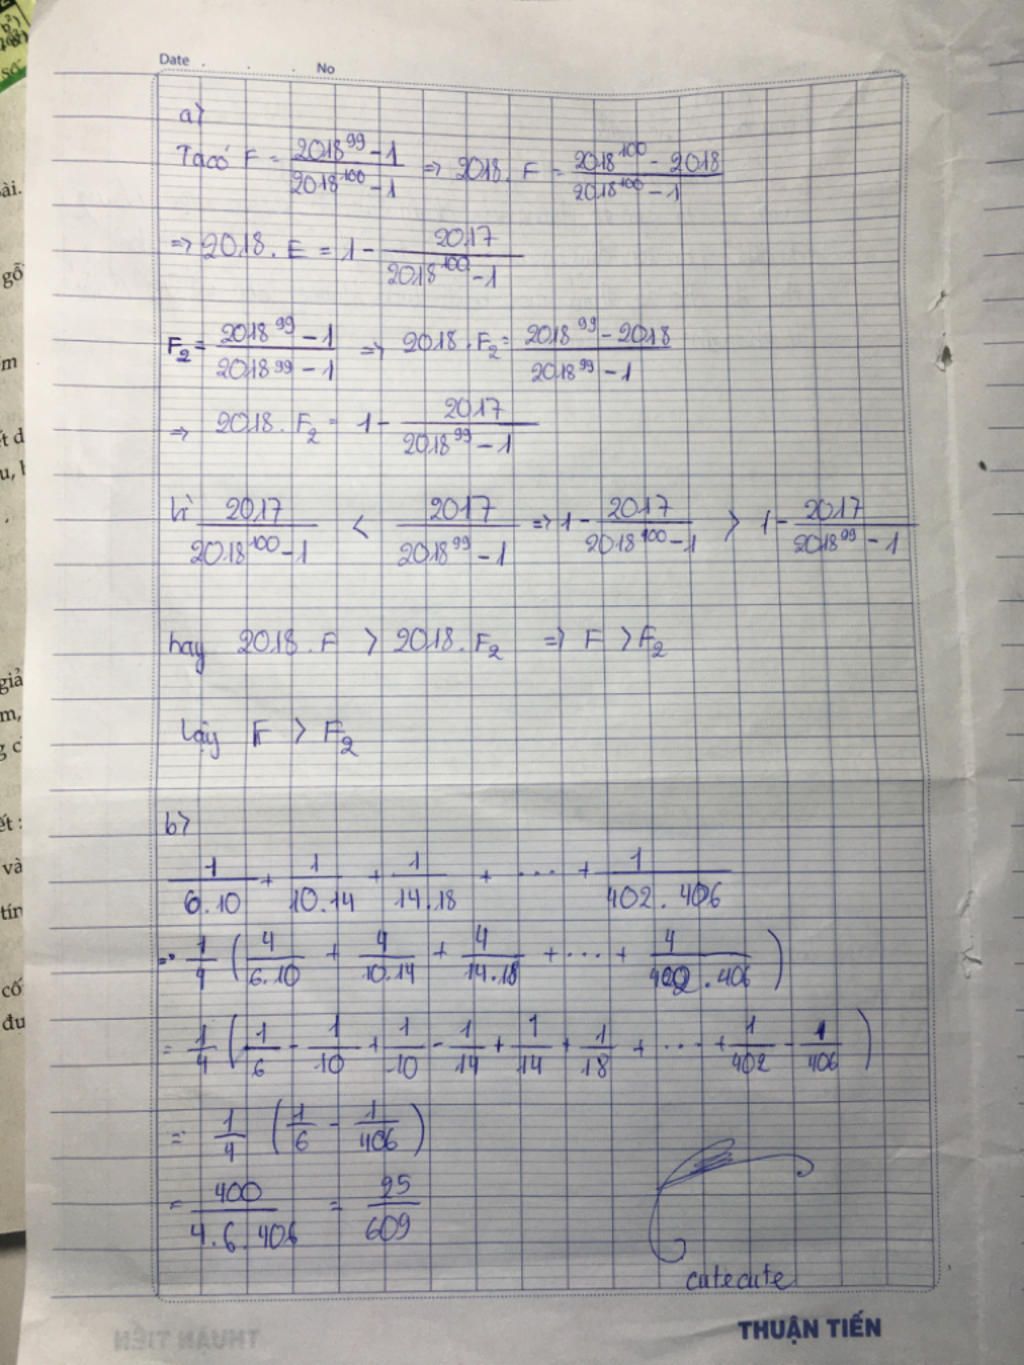 Date . . . No
a)
Ta có F = \frac{2018^{99} - 1}{2018^{100} - 1} => 2018. F = \frac{2018^{100} - 2018}{2018^{100} - 1}
=> 2018. E = 1 - \frac{2017}{2018^{100} - 1}
F_2 = \frac{2018^{99} - 1}{2018^{99} - 1} => 2018. F_2 = \frac{2018^{99} - 2018}{2018^{99} - 1}
=> 2018. F_2 = 1 - \frac{2017}{2018^{99} - 1}
Vì \frac{2017}{2018^{100} - 1} < \frac{2017}{2018^{99} - 1} => 1 - \frac{2017}{2018^{100} - 1} > 1 - \frac{2017}{2018^{99} - 1}
hay 2018. F > 2018. F_2 => F > F_2
Vậy F > F_2
b)
\frac{1}{6.10} + \frac{1}{10.14} + \frac{1}{14.18} + ... + \frac{1}{402.406}
= \frac{1}{4} ( \frac{4}{6.10} + \frac{4}{10.14} + \frac{4}{14.18} + ... + \frac{4}{402.406} )
= \frac{1}{4} ( \frac{1}{6} - \frac{1}{10} + \frac{1}{10} - \frac{1}{14} + \frac{1}{14} + \frac{1}{18} + ... + \frac{1}{402} - \frac{1}{406} )
= \frac{1}{4} ( \frac{1}{6} - \frac{1}{406} )
= \frac{400}{4.6.406} = \frac{25}{609}
cutecute
THUẬN TIẾN